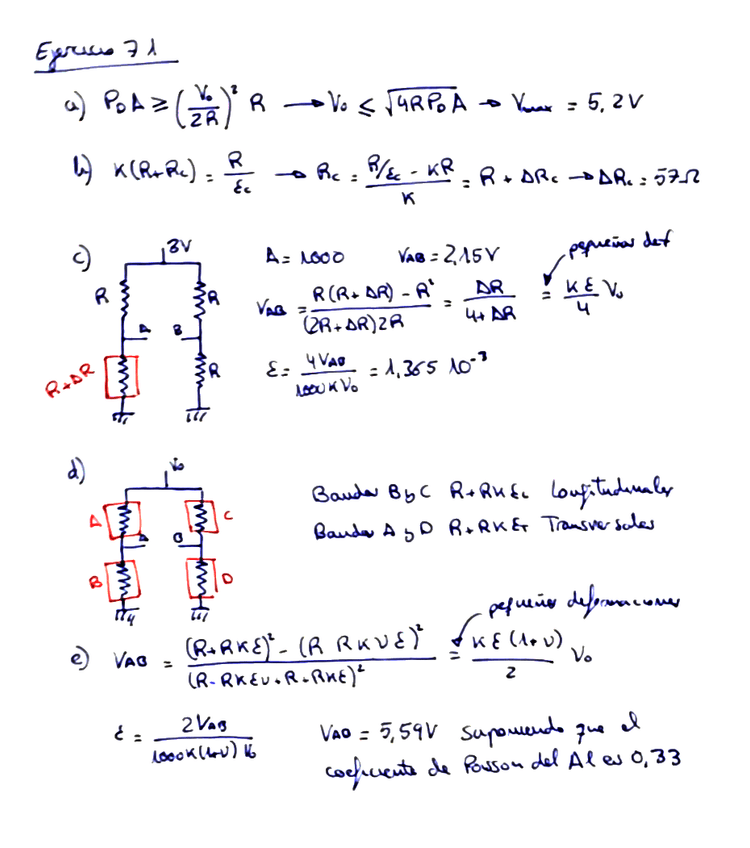 Ejercicio 7 1
a) P_D A ≥ (V_0 / 2R)² R → V_0 ≤ √(4RP_D A) → V_max = 5,2V
b) K(R+R_c) = R / ε_c → R_c = (R/ε_c - KR) / K = R + ΔR_c → ΔR_c = 57Ω
c) 3V R R A B R+ΔR R
A = 1000 V_AB = 2,15V
pequeñas def
V_AB = (R(R+ΔR) - R²) / ((2R+ΔR)2R) = ΔR / (4+ΔR) = (Kε / 4) V_0
ε = 4V_AB / (1000 K V_0) = 1,365 10⁻³
d) V_0 A C A B B D
Bandas B y C R+RKε_L Longitudinales
Bandas A y D R+RKε_T Transversales
pequeñas deformaciones
e) V_AB = ((R+RKε)² - (R RKνε)²) / (R-RKεν+R+RKε)² = (Kε(1+ν) / 2) V_0
ε = 2V_AB / (1000K(1+ν)V_0) V_AB = 5,59V suponiendo que el
coeficiente de Poisson del Al es 0,33